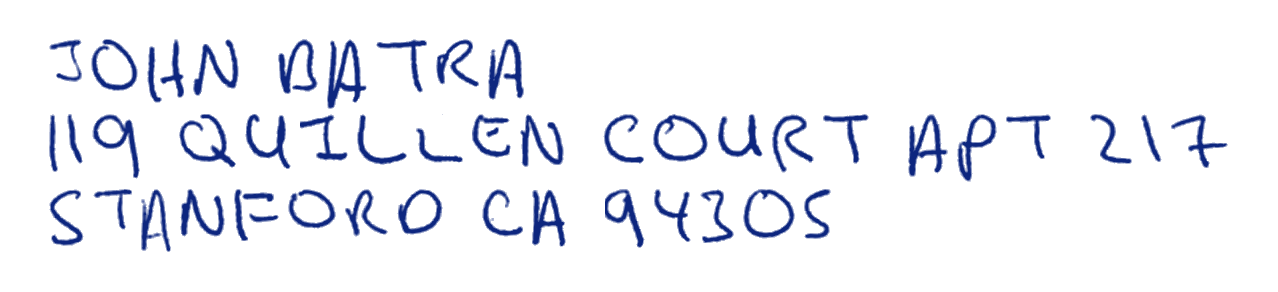 JOHN BATRA
119 QUILLEN COURT APT 217
STANFORD CA 94305